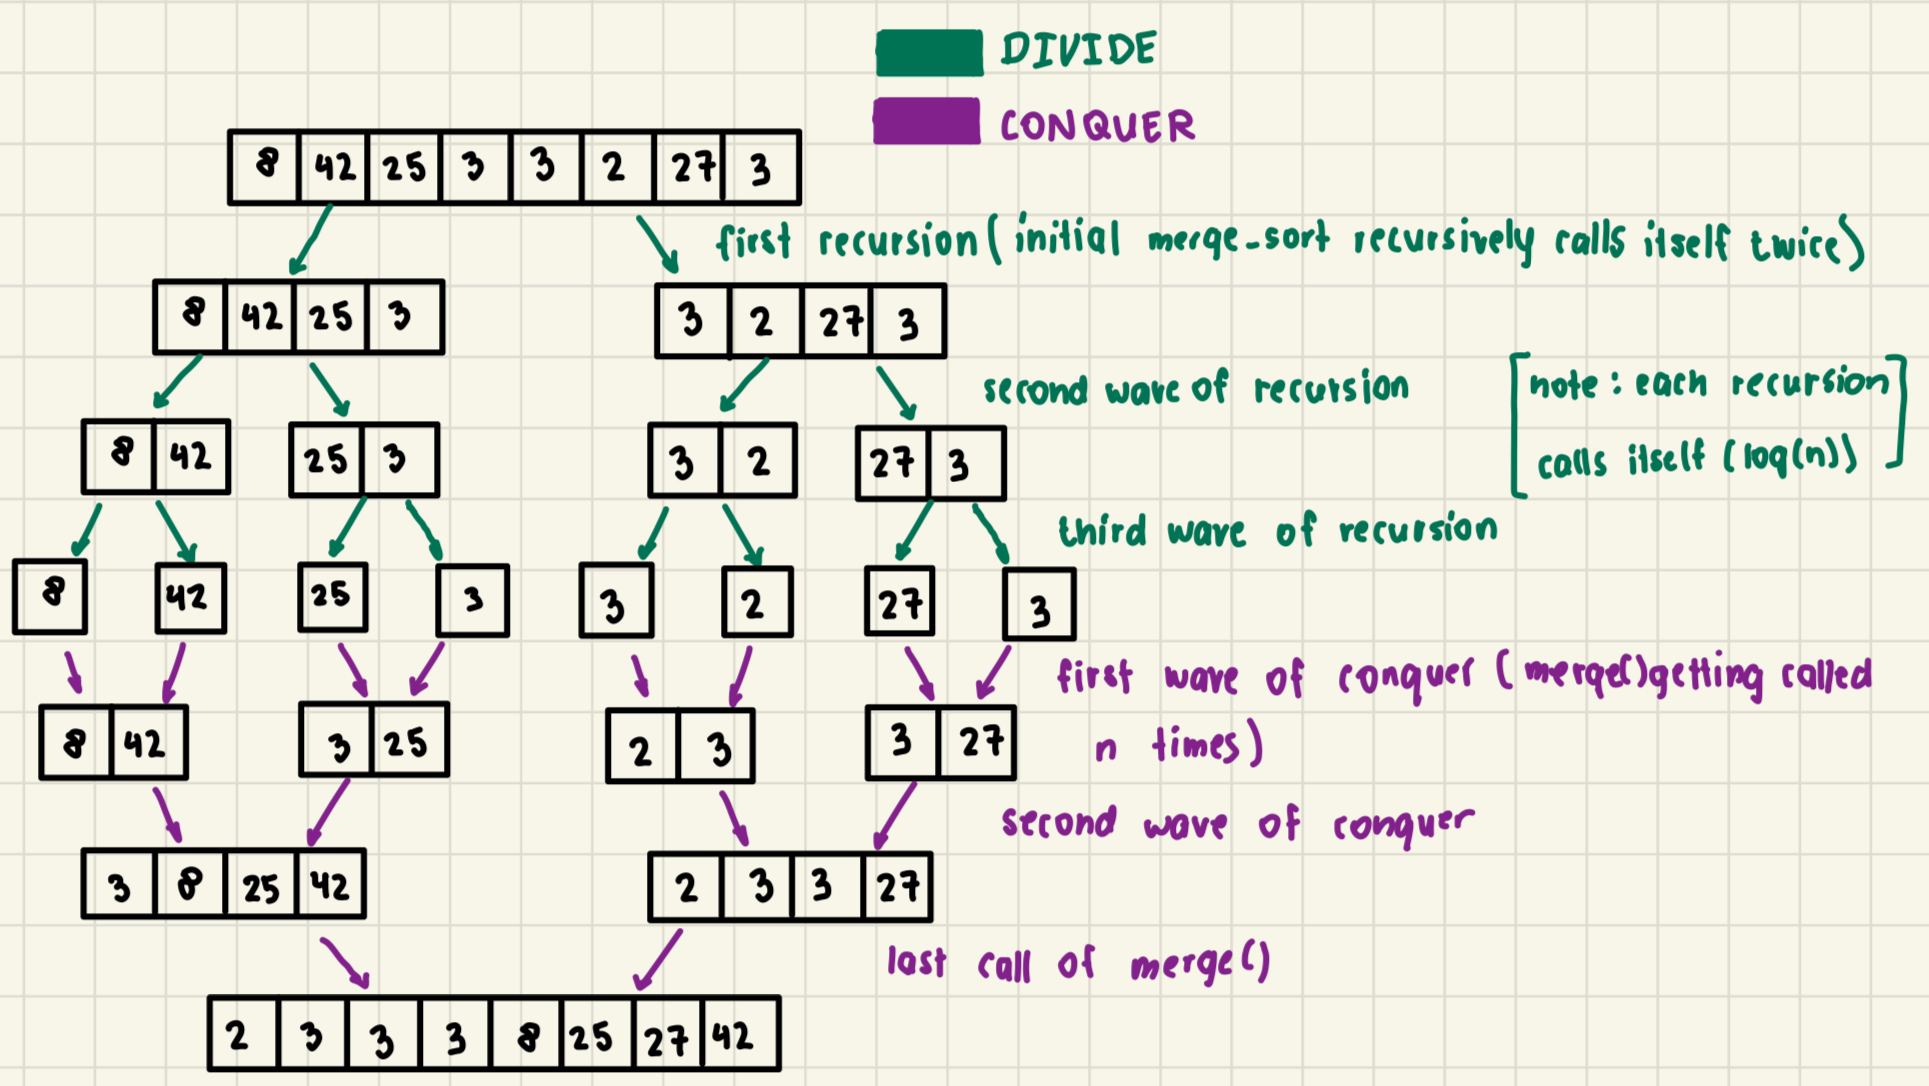 DIVIDE
CONQUER
8 42 25 3 3 2 27 3
first recursion( initial merge-sort recursively calls itself twice)
8 42 25 3 3 2 27 3
second wave of recursion
[note : each recursion
calls itself (log(n))]
8 42 25 3 3 2 27 3
third wave of recursion
8 42 25 3 3 2 27 3
first wave of conquer ( merge()getting called
n times)
8 42 3 25 2 3 3 27
second wave of conquer
3 8 25 42 2 3 3 27
last call of merge()
2 3 3 3 8 25 27 42